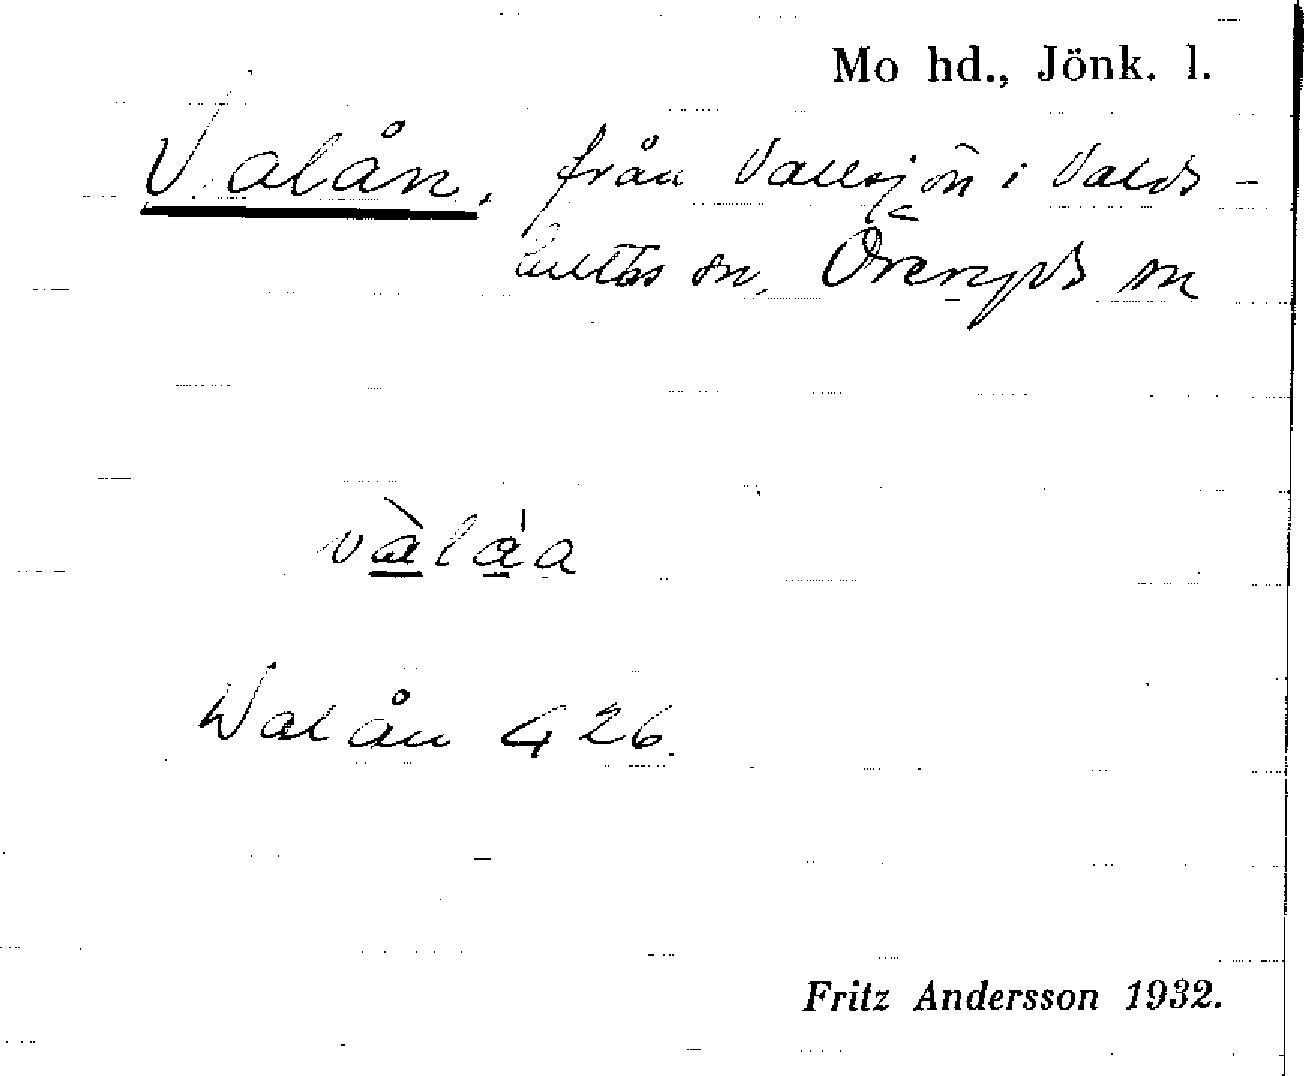 Mo hd., Jönk. l.
Valån, från Vallsjön i Valds-
hults sn, Öreryds sn
vàlàa
Walån 426.
Fritz Andersson 1932.